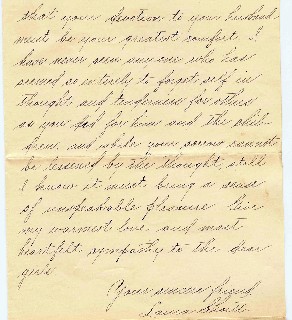 that your devotion to your husband
must be your greatest comfort. I
have never seen any one who has
seemed so entirely to forget self in
thought and tenderness for others
as you did for him and the child-
ren, and while your sorrow cannot
be lessened by the thought, still
I know it must bring a sense
of unspeakable pleasure. Give
my warmest love and most
heartfelt sympathy to the dear
girls.
Your sincere friend